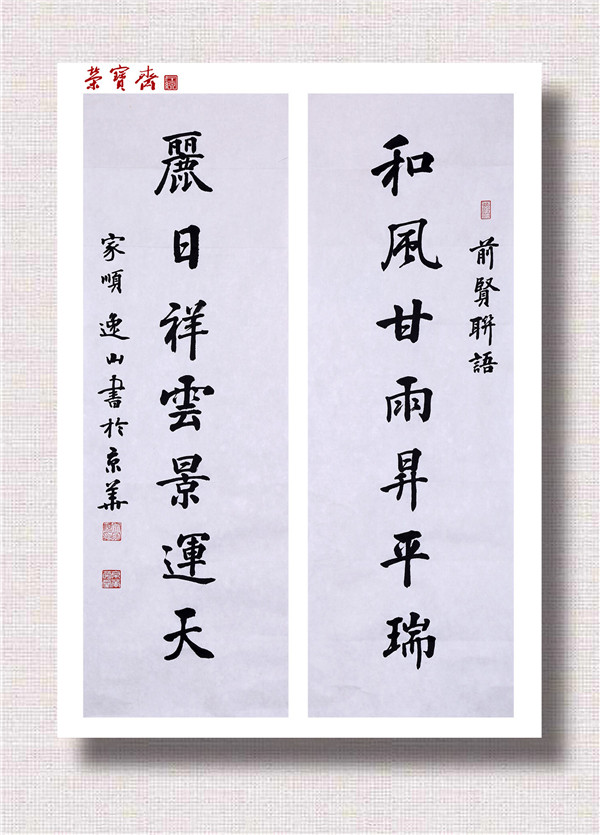 榮寶齋
前賢聯語
和風甘雨昇平瑞
麗日祥雲景運天
家順 逸山書於京華